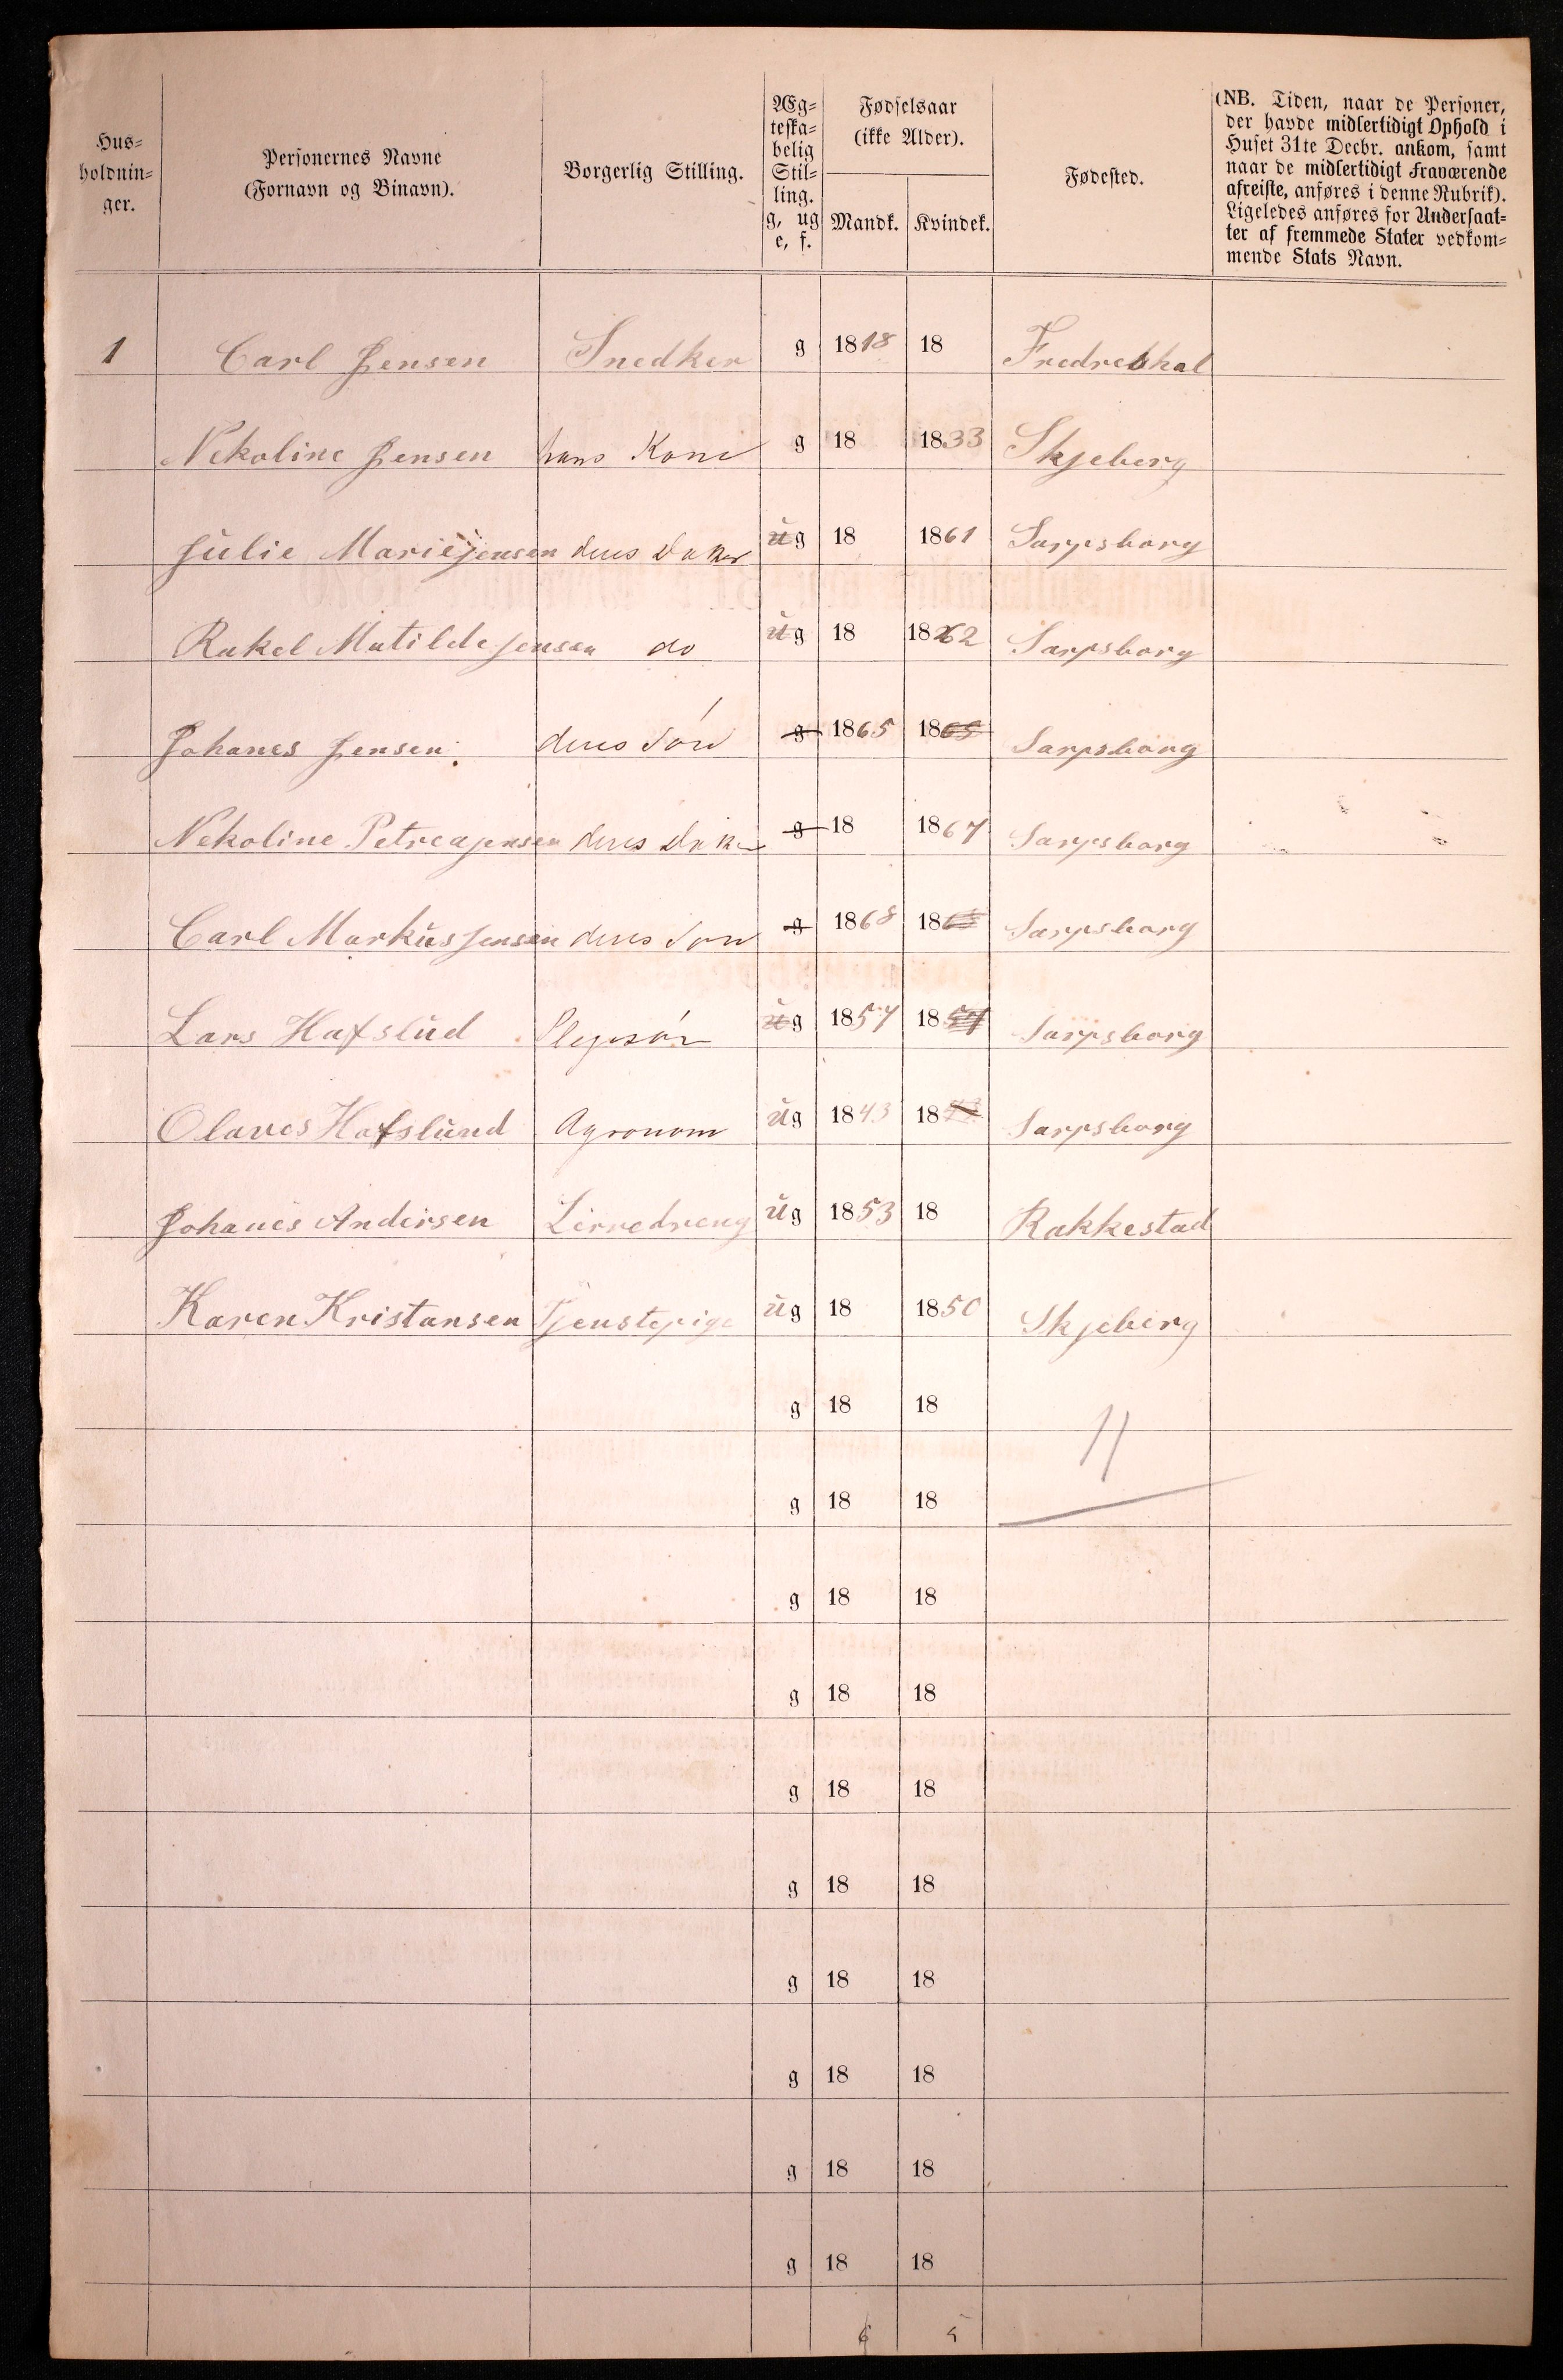 Hus-
holdnin-
ger.
Personernes Navne
(Fornavn og Binavn).
Borgerlig Stilling.
Æg-
teska-
belig
Stil-
ling.
g, ug
e, f.
Fødselsaar
(ikke Alder).
Mandk. Kvindek.
Fødested.
(NB. Tiden, naar de Personer,
der havde midlertidigt Ophold i
Huset 31te Decbr. ankom, samt
naar de midlertidigt Fraværende
afreiste, anføres i denne Rubrik).
Ligeledes anføres for Undersaat-
ter af fremmede Stater vedkom-
mende Stats Navn.
1 Carl Jensen Snedker g 1818 18 Fredrekhal
Nekoline Jensen hans Kone g 18 1833 Skjeberg
Julie Marie Jensen deres Dater ug 18 1861 Sarpsborg
Rakel Matilde Jensen do ug 18 1862 Sarpsborg
Johanes Jensen deres Søn g 1865 1865 Sarpsborg
Nekoline Petrea Jensen deres Dater g 18 1867 Sarpsborg
Carl Markus Jensen deres Søn g 1868 18 Sarpsborg
Lars Hafslud Plejesøn ug 1857 1857 Sarpsborg
Olaves Hafslund Agronom ug 1843 1843 Sarpsborg
Johanes Andersen Lerredreng ug 1853 18 Rakkestad
Karen Kristansen Tjenstepige ug 18 1850 Skjeberg
g 18 18 11
g 18 18
g 18 18
g 18 18
g 18 18
g 18 18
g 18 18
g 18 18
g 18 18
g 18 18
6 5